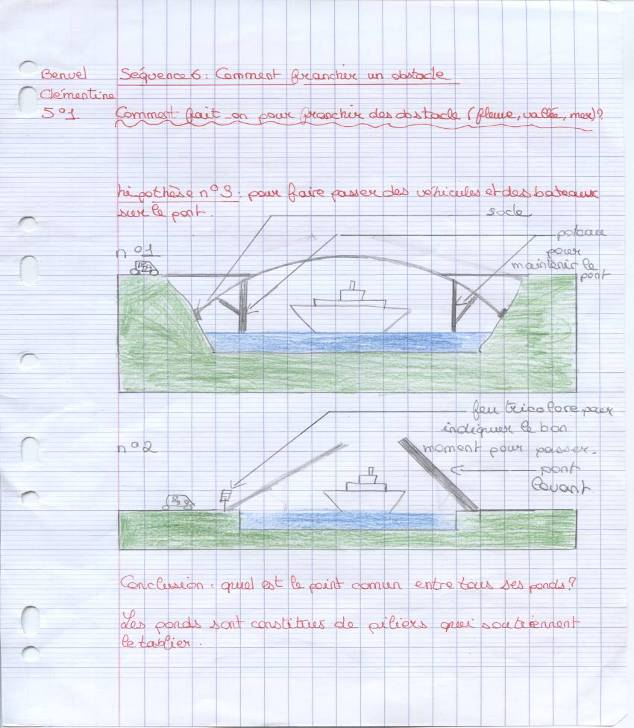 Benuel Séquence 6 : Comment franchir un obstacle
Clémentine
5°1 Comment fait-on pour franchir des obstacle (fleuve, vallée, mer)?
hipothèse n°3 : pour faire passer des véhicules et des bateaux
sur le pont.
socle
n°1
poteau
pour
maintenir le
pont
feu tricolore pour
indiquer le bon
n°2
moment pour passer.
pont
levant
Conclusion : quel est le point comun entre tous ses ponds ?
Les ponds sont constitués de piliers qui soutiennent
le tablier.